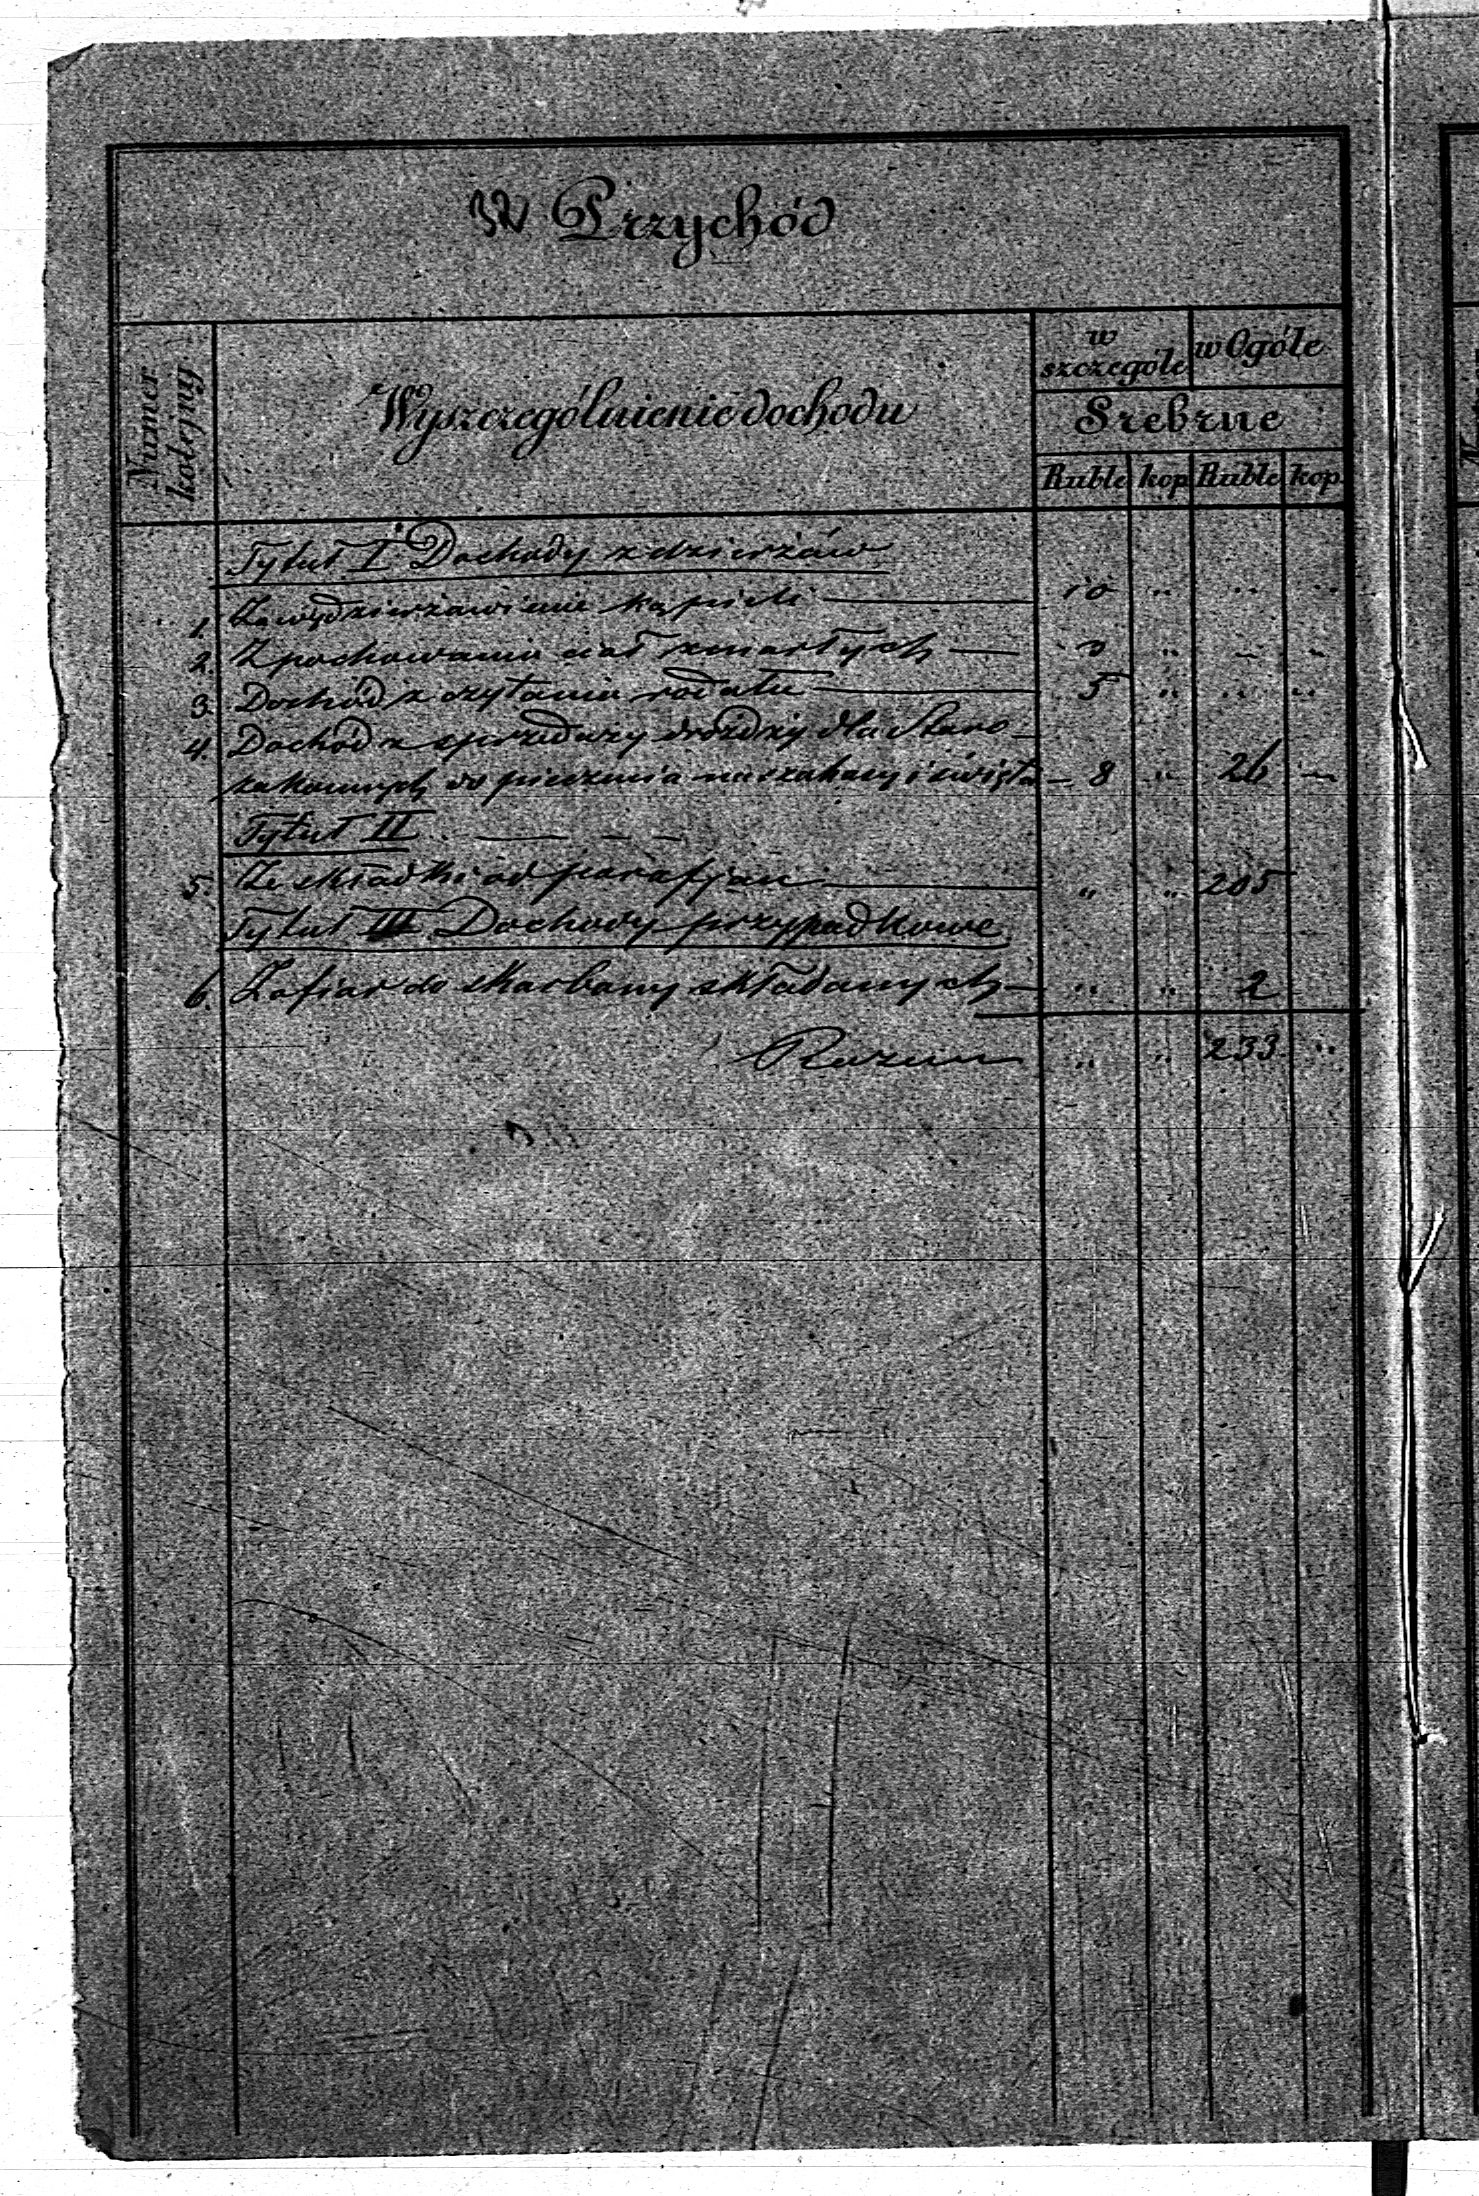 W Przychód
Numer kolejny.
Wyszczególnienie dochodu
w szczególe
w Ogóle
Srebrne
Ruble kop Ruble kop.
Tytuł I Dochody z dzierżaw
1. Za wydzierżawienie kąpieli 10 „ „ „
2. Z pochowania ciał zmarłych 3 „ „ „
3. Dochód z czytania rodału 5 „ „ „
4. Dochód z sprzedaży drożdży dla Staro-
zakonnych do pieczenia na szabasy i święta 8 „ 26 „
Tytuł II
5. Ze składki od parafjan „ „ 205
Tytuł III Dochody przypadkowe
6. Z ofiar do skarbony składanych „ „ 2
Razem „ „ 233 „